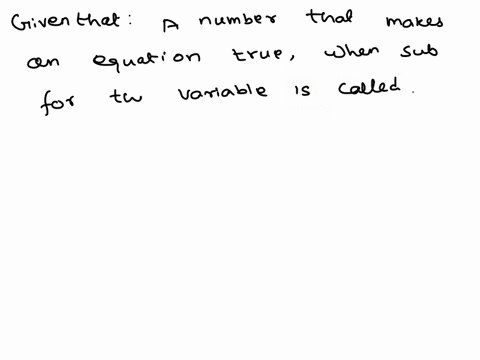 Given that: A number that makes
an equation true, when sub
for tw variable is called.